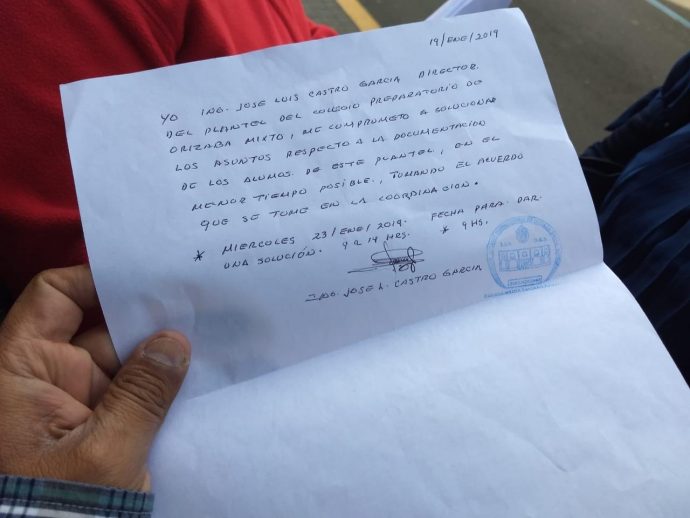 19/ENE/2019
YO ING. JOSE LUIS CASTRO GARCIA DIRECTOR.
DEL PLANTEL DEL COLEGIO PREPARATORIO DE
ORIZABA MIXTO, ME COMPROMETO A SOLUCIONAR
LOS ASUNTOS RESPECTO A LA DOCUMENTACION
DE LOS ALUMOS DE ESTE PLANTEL, EN EL
MENOR TIEMPO POSIBLE., TOMANDO EL ACUERDO
QUE SE TOME EN LA COORDINACION.
* MIERCOLES 23/ENE/2019. FECHA PARA DAR.
UNA SOLUCIÓN. 9 A 14 HRS. * 9 HS.
ING. JOSE L. CASTRO GARCIA